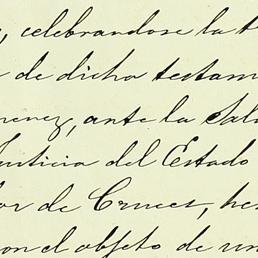 , celebrandose la
de dicho testam
menez, ante la Sala
Justicia del Estado
or de Cruces, he
on el objeto de un